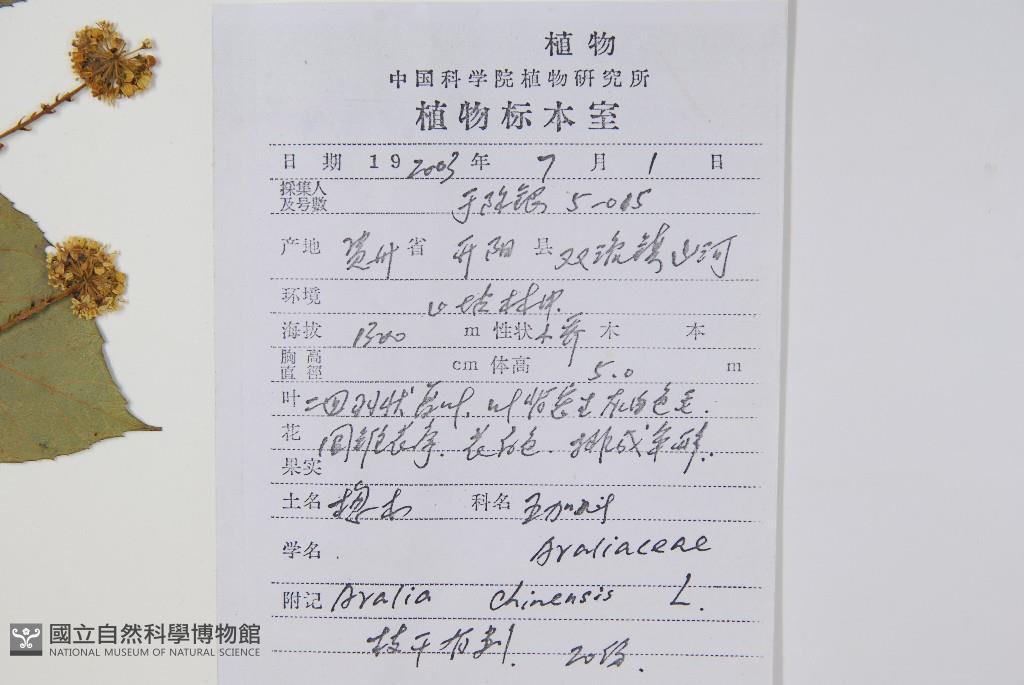 植物
中国科学院植物研究所
植物标本室
日期 19 2003 年 7 月 1 日
採集人及号數 5-015
产地 贵州 省 开阳 县 双流镇山河
环境 山坡林中.
海拔 1300 m 性状 小乔 木 本
胸高直徑 cm 体高 5.0 m
叶 二回羽状复叶. 叶背密生灰白色毛.
花 圆锥花序. 花白色. 排成伞形.
果实
土名 楤木 科名 五加科
学名 . Araliaceae
附记 Aralia chinensis L.
枝干有刺. 20份.
國立自然科學博物館
NATIONAL MUSEUM OF NATURAL SCIENCE